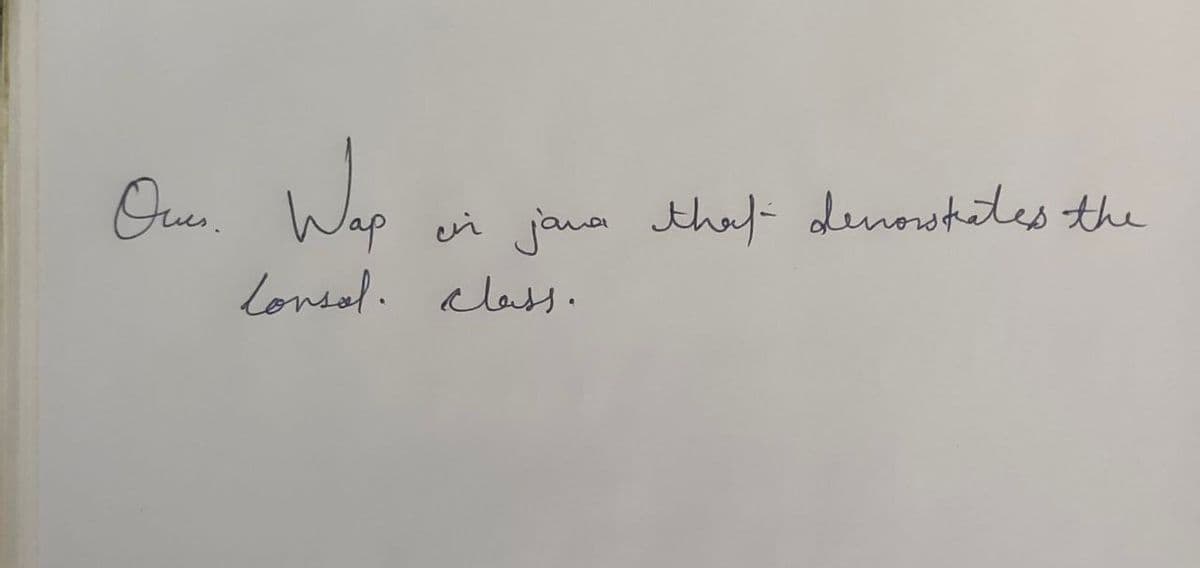 Ques. Wap in java that demonstrates the
Consol. class.